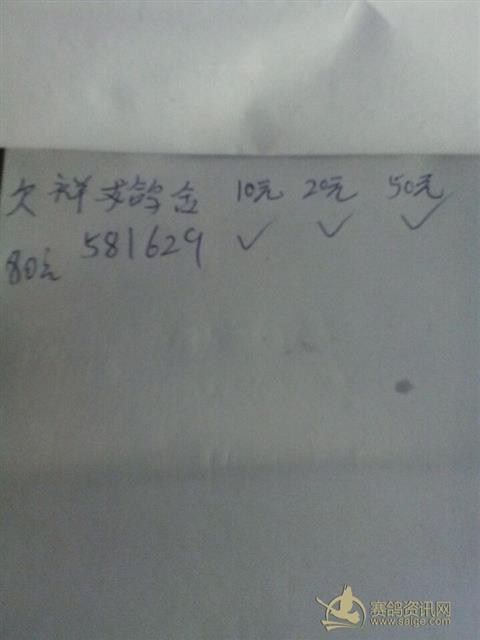 欠祥 鸽金 10元 20元 50元
80元 581629 ✓ ✓ ✓
赛鸽资讯网
www.saige.com